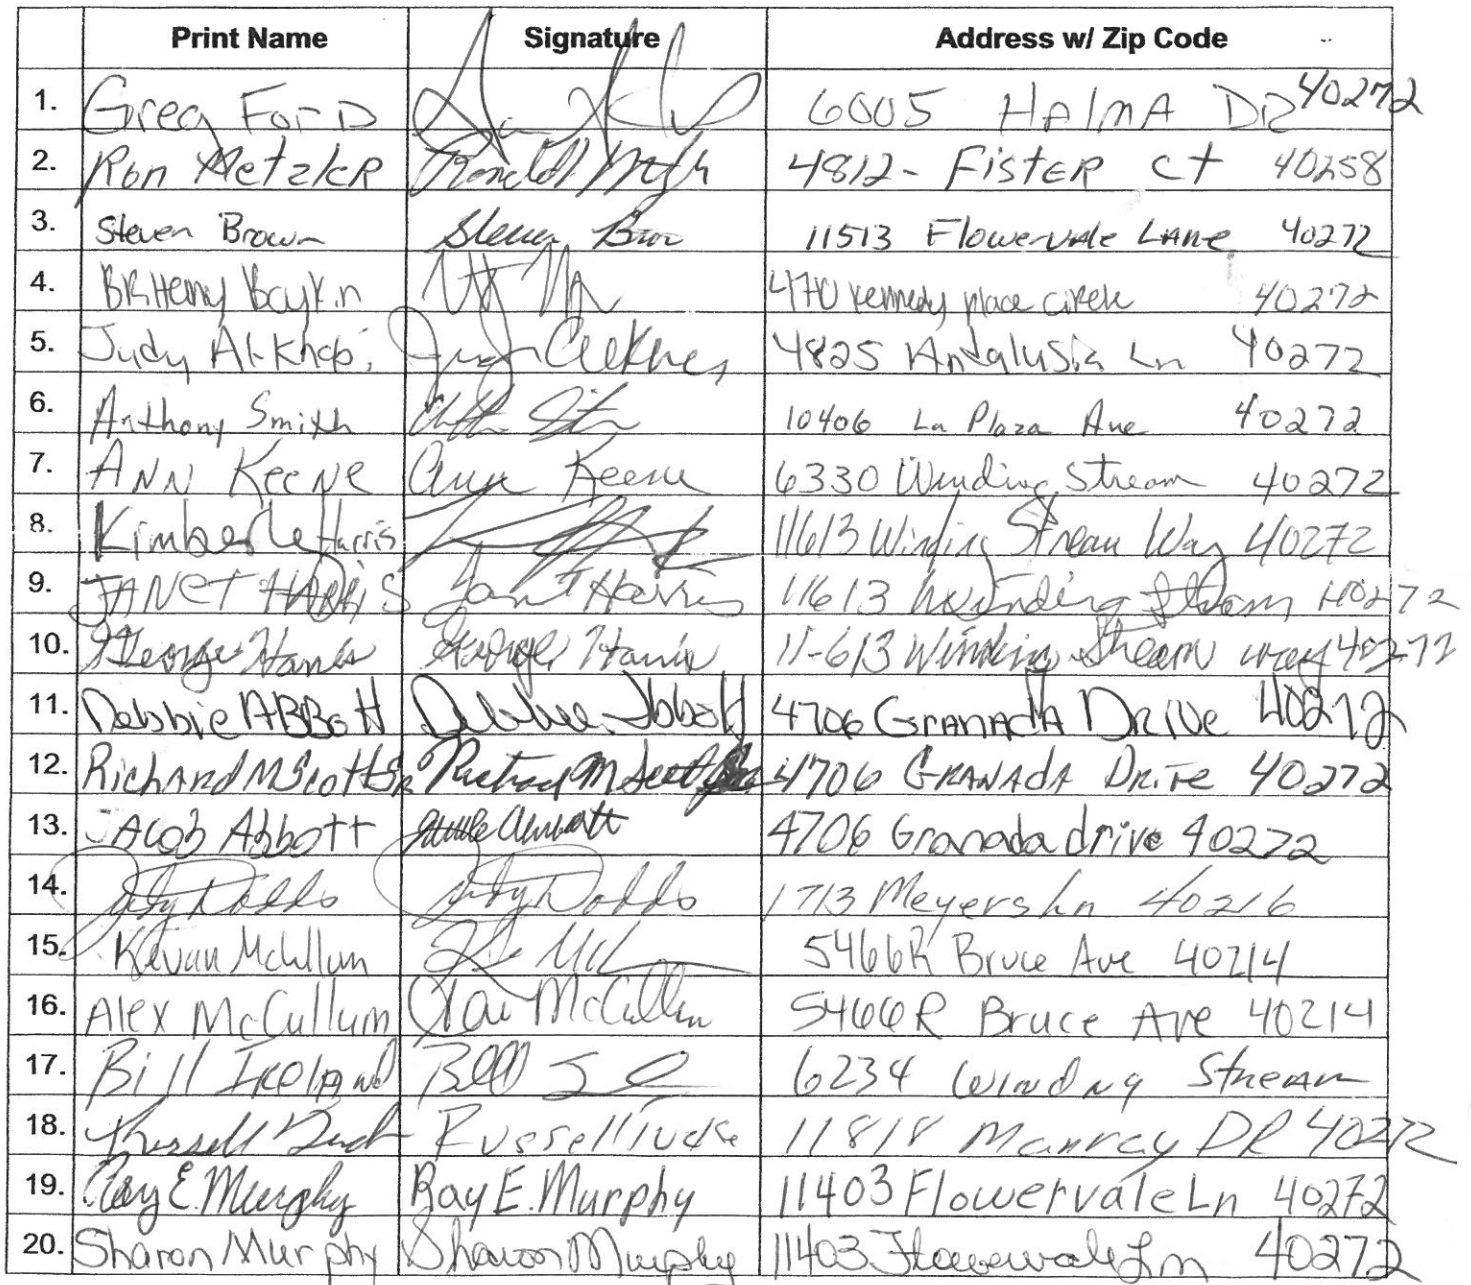 Print Name Signature Address w/ Zip Code
1. Greg Ford 6005 HAlmA DR 40272
2. Ron Metzler Ronald 4812- FistER ct 40258
3. Steven Brown Steven Brow 11513 Flowervale LAne 40272
4. BRittany Boykin 4710 Kennedy place circle 40272
5. Judy Al-Khabi 4825 Andalusia Ln 40272
6. Anthony Smith 10406 La Plaza Ave 40272
7. ANN KeeNe Ann Keene 6330 Winding Stream 40272
8. Kimberle Harris 11613 Winding Stream Way 40272
9. JANET HARRiS Janet Harris 11613 Winding Stream 40272
10. George Harris George Harris 11-613 Winding Stream way 40272
11. Debbie ABBott Debbie Abbott 4706 GRANADA DRiVe 40272
12. RichARd M Scott SR Richard M Scott 4706 GRANAdA DRive 40272
13. JAcob Abbott 4706 Granada drive 40272
14. Judy Dodds Judy Dodds 1713 Meyers Ln 40216
15. Kevan McCullum 5466R Bruce Ave 40214
16. Alex McCullum McCullum 5466R Bruce Ave 40214
17. Bill IRelANd Bill 6234 Winding StReAm
18. Russell Russell 11818 Manray DR 40272
19. Ray E. Murphy Ray E. Murphy 11403 Flowervale Ln 40272
20. Sharon Murphy Sharon Murphy 11403 Flowervale Ln 40272